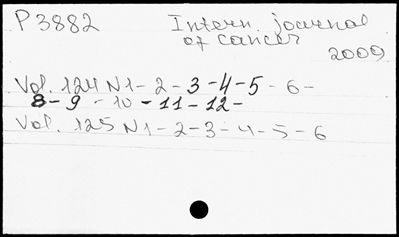 P3882 Intern. journal
of cancer
2009
Vol. 124 N1 - 2 - 3 - 4 - 5 - 6 -
8 - 9 - 10 - 11 - 12 -
Vol. 125 N1 - 2 - 3 - 4 - 5 - 6